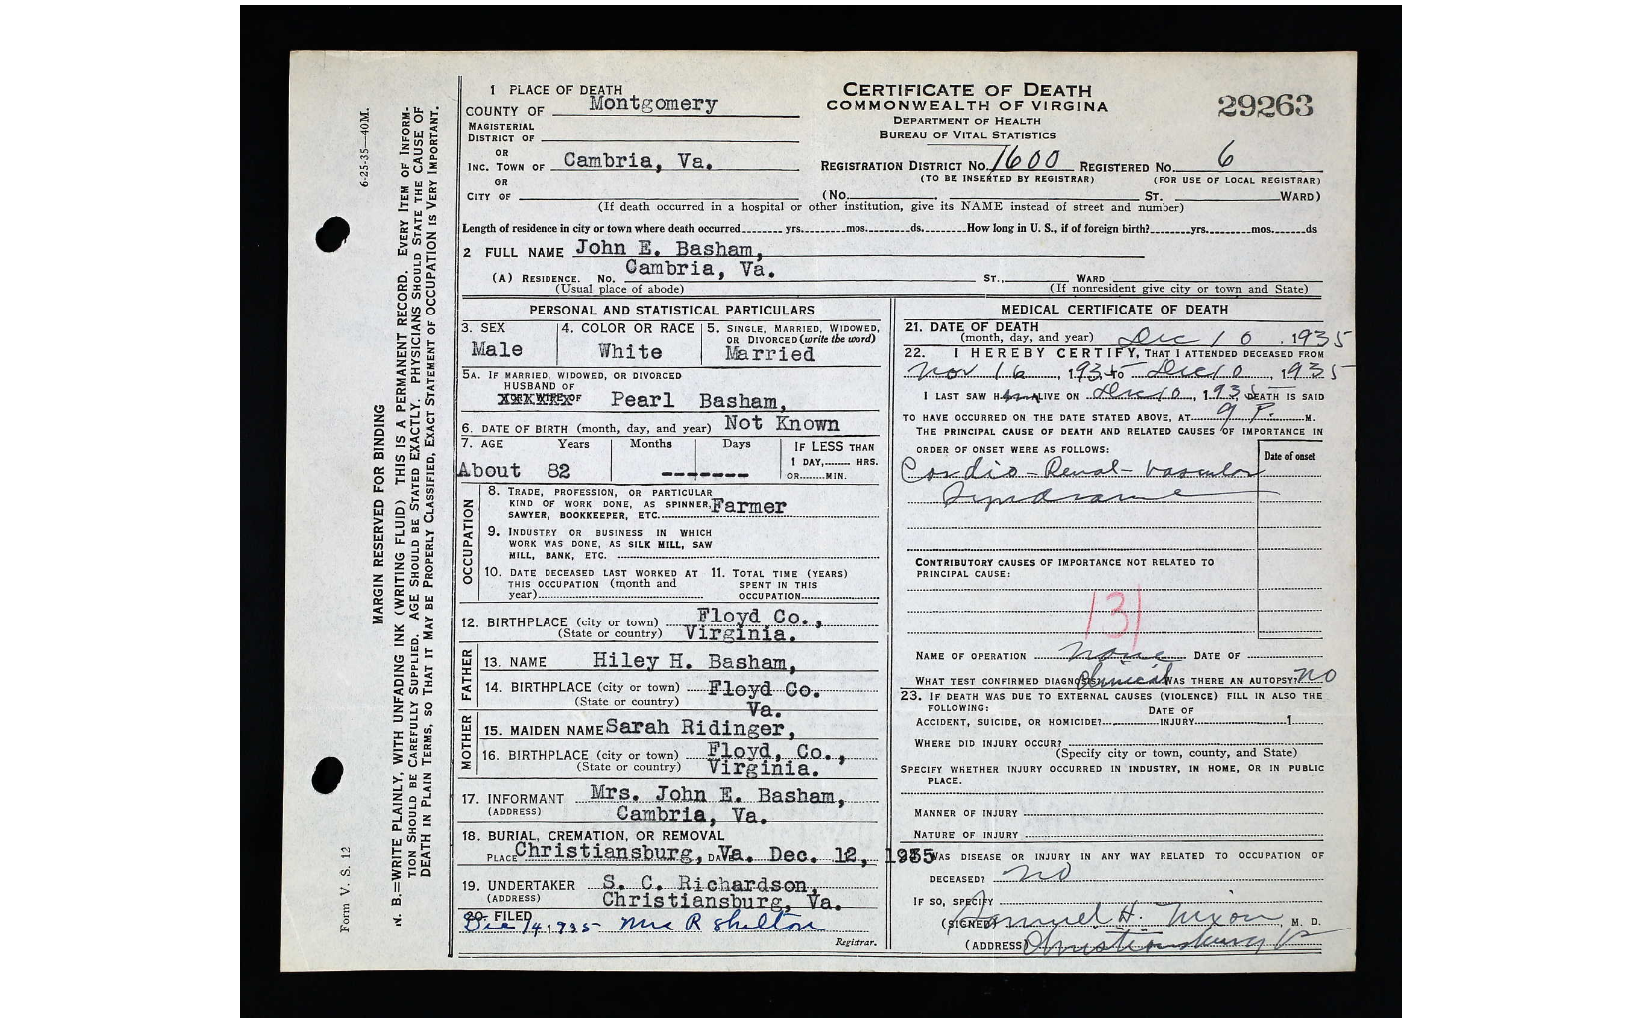 6-25-35—40M.
MARGIN RESERVED FOR BINDING
N. B.—WRITE PLAINLY, WITH UNFADING INK (WRITING FLUID) THIS IS A PERMANENT RECORD. EVERY ITEM OF INFORM-
TION SHOULD BE CAREFULLY SUPPLIED. AGE SHOULD BE STATED EXACTLY. PHYSICIANS SHOULD STATE THE CAUSE OF
DEATH IN PLAIN TERMS, SO THAT IT MAY BE PROPERLY CLASSIFIED, EXACT STATEMENT OF OCCUPATION IS VERY IMPORTANT.
Form V. S. 12
1 PLACE OF DEATH
COUNTY OF Montgomery
MAGISTERIAL
DISTRICT OF
OR
INC. TOWN OF Cambria, Va.
OR
CITY OF
CERTIFICATE OF DEATH
COMMONWEALTH OF VIRGINA
DEPARTMENT OF HEALTH
BUREAU OF VITAL STATISTICS
29263
REGISTRATION DISTRICT NO. 1600 REGISTERED NO. 6
(TO BE INSERTED BY REGISTRAR) (FOR USE OF LOCAL REGISTRAR)
(No. , ST. WARD)
(If death occurred in a hospital or other institution, give its NAME instead of street and number)
Length of residence in city or town where death occurred yrs. mos. ds. How long in U. S., if of foreign birth? yrs. mos. ds
2 FULL NAME John E. Basham,
(A) RESIDENCE. No. Cambria, Va. ST., WARD
(Usual place of abode) (If nonresident give city or town and State)
PERSONAL AND STATISTICAL PARTICULARS
3. SEX 4. COLOR OR RACE 5. SINGLE, MARRIED, WIDOWED,
OR DIVORCED (write the word)
Male White Married
5A. IF MARRIED, WIDOWED, OR DIVORCED
HUSBAND OF
OR WIFE OF Pearl Basham,
6. DATE OF BIRTH (month, day, and year) Not Known
7. AGE Years Months Days IF LESS THAN
1 DAY, HRS.
OR MIN.
About 82 --------
OCCUPATION
8. TRADE, PROFESSION, OR PARTICULAR
KIND OF WORK DONE, AS SPINNER,
SAWYER, BOOKKEEPER, ETC. Farmer
9. INDUSTRY OR BUSINESS IN WHICH
WORK WAS DONE, AS SILK MILL, SAW
MILL, BANK, ETC.
10. DATE DECEASED LAST WORKED AT 11. TOTAL TIME (YEARS)
THIS OCCUPATION (month and SPENT IN THIS
year) OCCUPATION
12. BIRTHPLACE (city or town) Floyd Co.,
(State or country) Virginia.
FATHER
13. NAME Hiley H. Basham,
14. BIRTHPLACE (city or town) Floyd Co.
(State or country) Va.
MOTHER
15. MAIDEN NAME Sarah Ridinger,
16. BIRTHPLACE (city or town) Floyd, Co.,
(State or country) Virginia.
17. INFORMANT Mrs. John E. Basham,
(ADDRESS) Cambria, Va.
18. BURIAL, CREMATION, OR REMOVAL
PLACE Christiansburg, Va. DATE Dec. 12, 1935
19. UNDERTAKER S. C. Richardson,
(ADDRESS) Christiansburg, Va.
20. FILED
Dec 14 1935 Mrs R Shelton
Registrar.
MEDICAL CERTIFICATE OF DEATH
21. DATE OF DEATH
(month, day, and year) Dec 10, 1935
22. I HEREBY CERTIFY, THAT I ATTENDED DECEASED FROM
Nov 16, 193 to Dec 10, 1935
I LAST SAW H ALIVE ON Dec 10, 1935 DEATH IS SAID
TO HAVE OCCURRED ON THE DATE STATED ABOVE, AT 9 P. M.
THE PRINCIPAL CAUSE OF DEATH AND RELATED CAUSES OF IMPORTANCE IN
ORDER OF ONSET WERE AS FOLLOWS:
Date of onset
Cardio-Renal-Vascular
Syndrome
CONTRIBUTORY CAUSES OF IMPORTANCE NOT RELATED TO
PRINCIPAL CAUSE:
131
NAME OF OPERATION None DATE OF
WHAT TEST CONFIRMED DIAGNOSIS? Clinical WAS THERE AN AUTOPSY? No
23. IF DEATH WAS DUE TO EXTERNAL CAUSES (VIOLENCE) FILL IN ALSO THE
FOLLOWING: DATE OF
ACCIDENT, SUICIDE, OR HOMICIDE? INJURY 1
WHERE DID INJURY OCCUR?
(Specify city or town, county, and State)
SPECIFY WHETHER INJURY OCCURRED IN INDUSTRY, IN HOME, OR IN PUBLIC
PLACE.
MANNER OF INJURY
NATURE OF INJURY
24. WAS DISEASE OR INJURY IN ANY WAY RELATED TO OCCUPATION OF
DECEASED? No
IF SO, SPECIFY
(SIGNED) Samuel H. Nixon, M. D.
(ADDRESS) Christiansburg Va